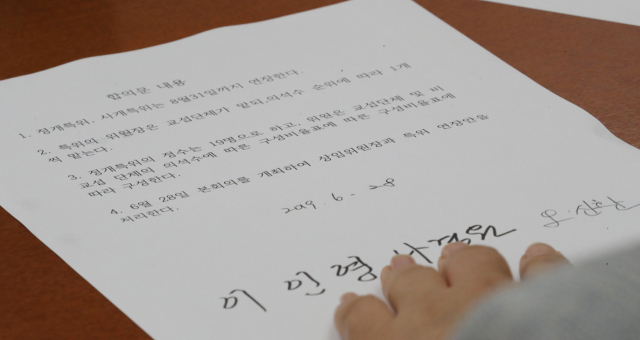 합의문 내용
1. 정개특위, 사개특위는 8월31일까지 연장한다.
2. 특위의 위원장은 교섭단체가 맡되,의석수 순위에 따라 1개
씩 맡는다.
3. 정개특위의 정수는 19명으로 하고, 위원은 교섭단체 및 비
교섭 단체의 의석수에 따른 구성비율표에 따른 구성비율표에
따라 구성한다.
4. 6월 28일 본회의를 개최하여 상임위원장과 특위 연장안을
처리한다.
2019. 6. 28
이인영 나경원 오신환